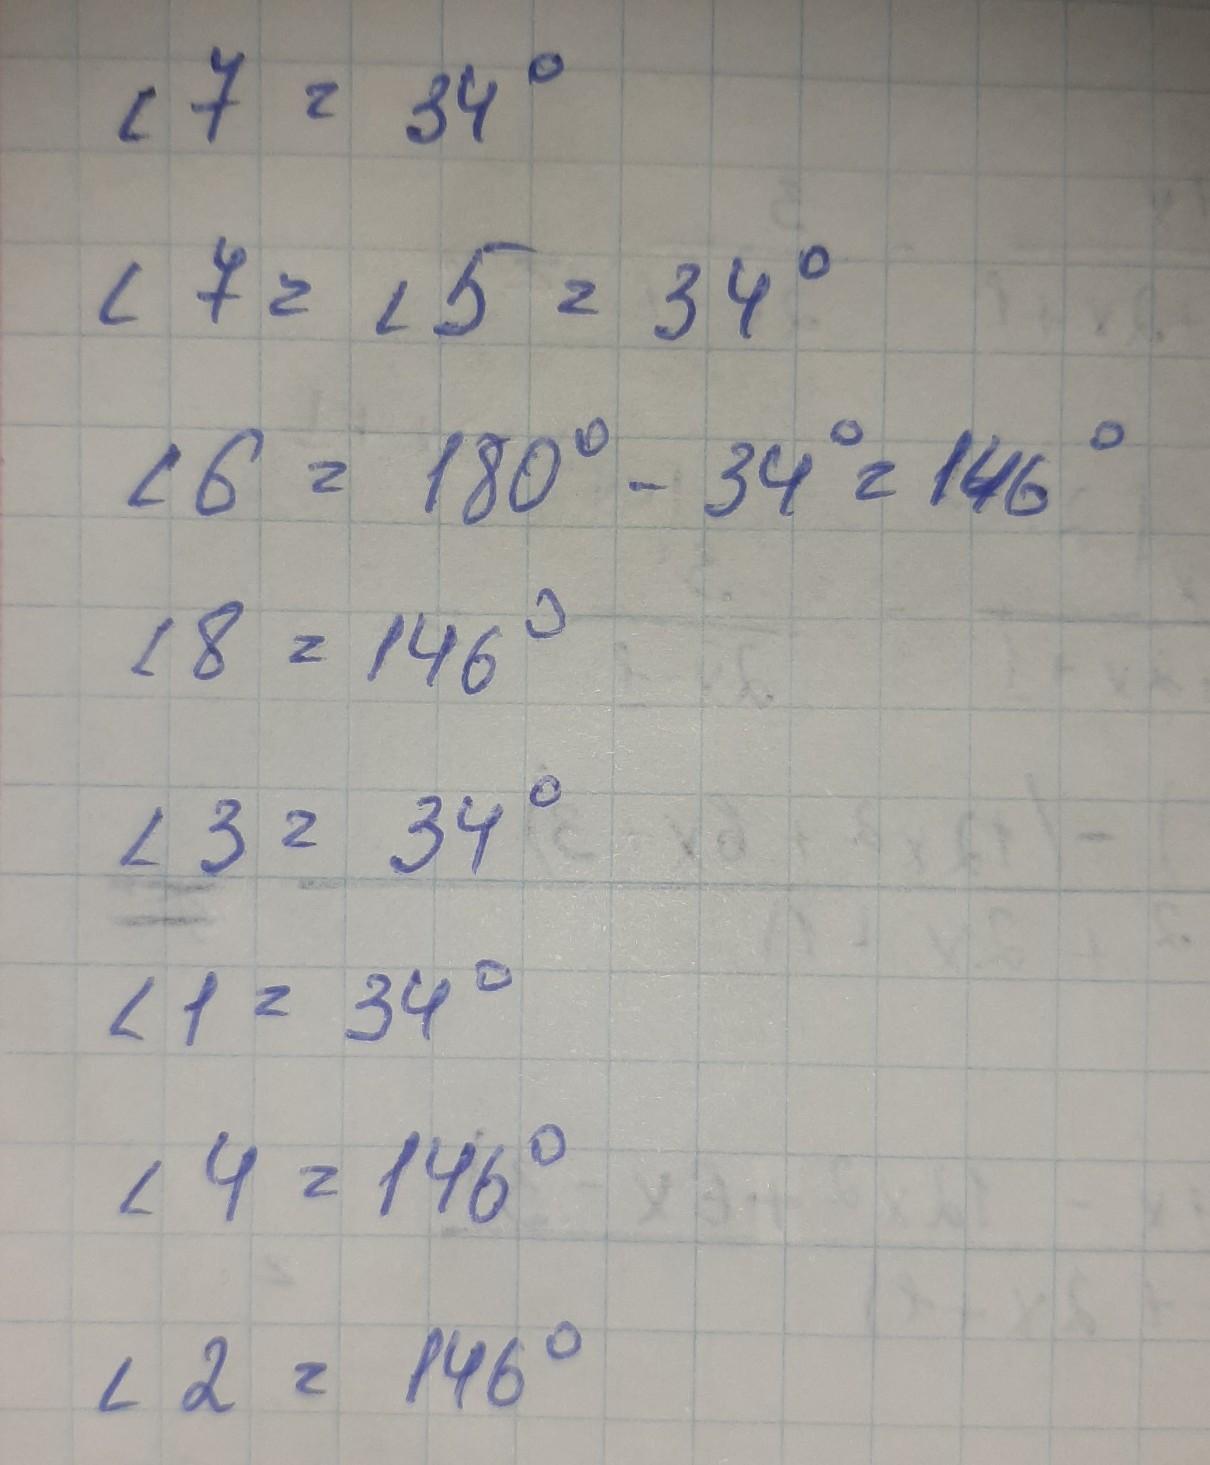 ∠7 = 34°
∠7 = ∠5 = 34°
∠6 = 180° - 34° = 146°
∠8 = 146°
∠3 = 34°
∠1 = 34°
∠4 = 146°
∠2 = 146°